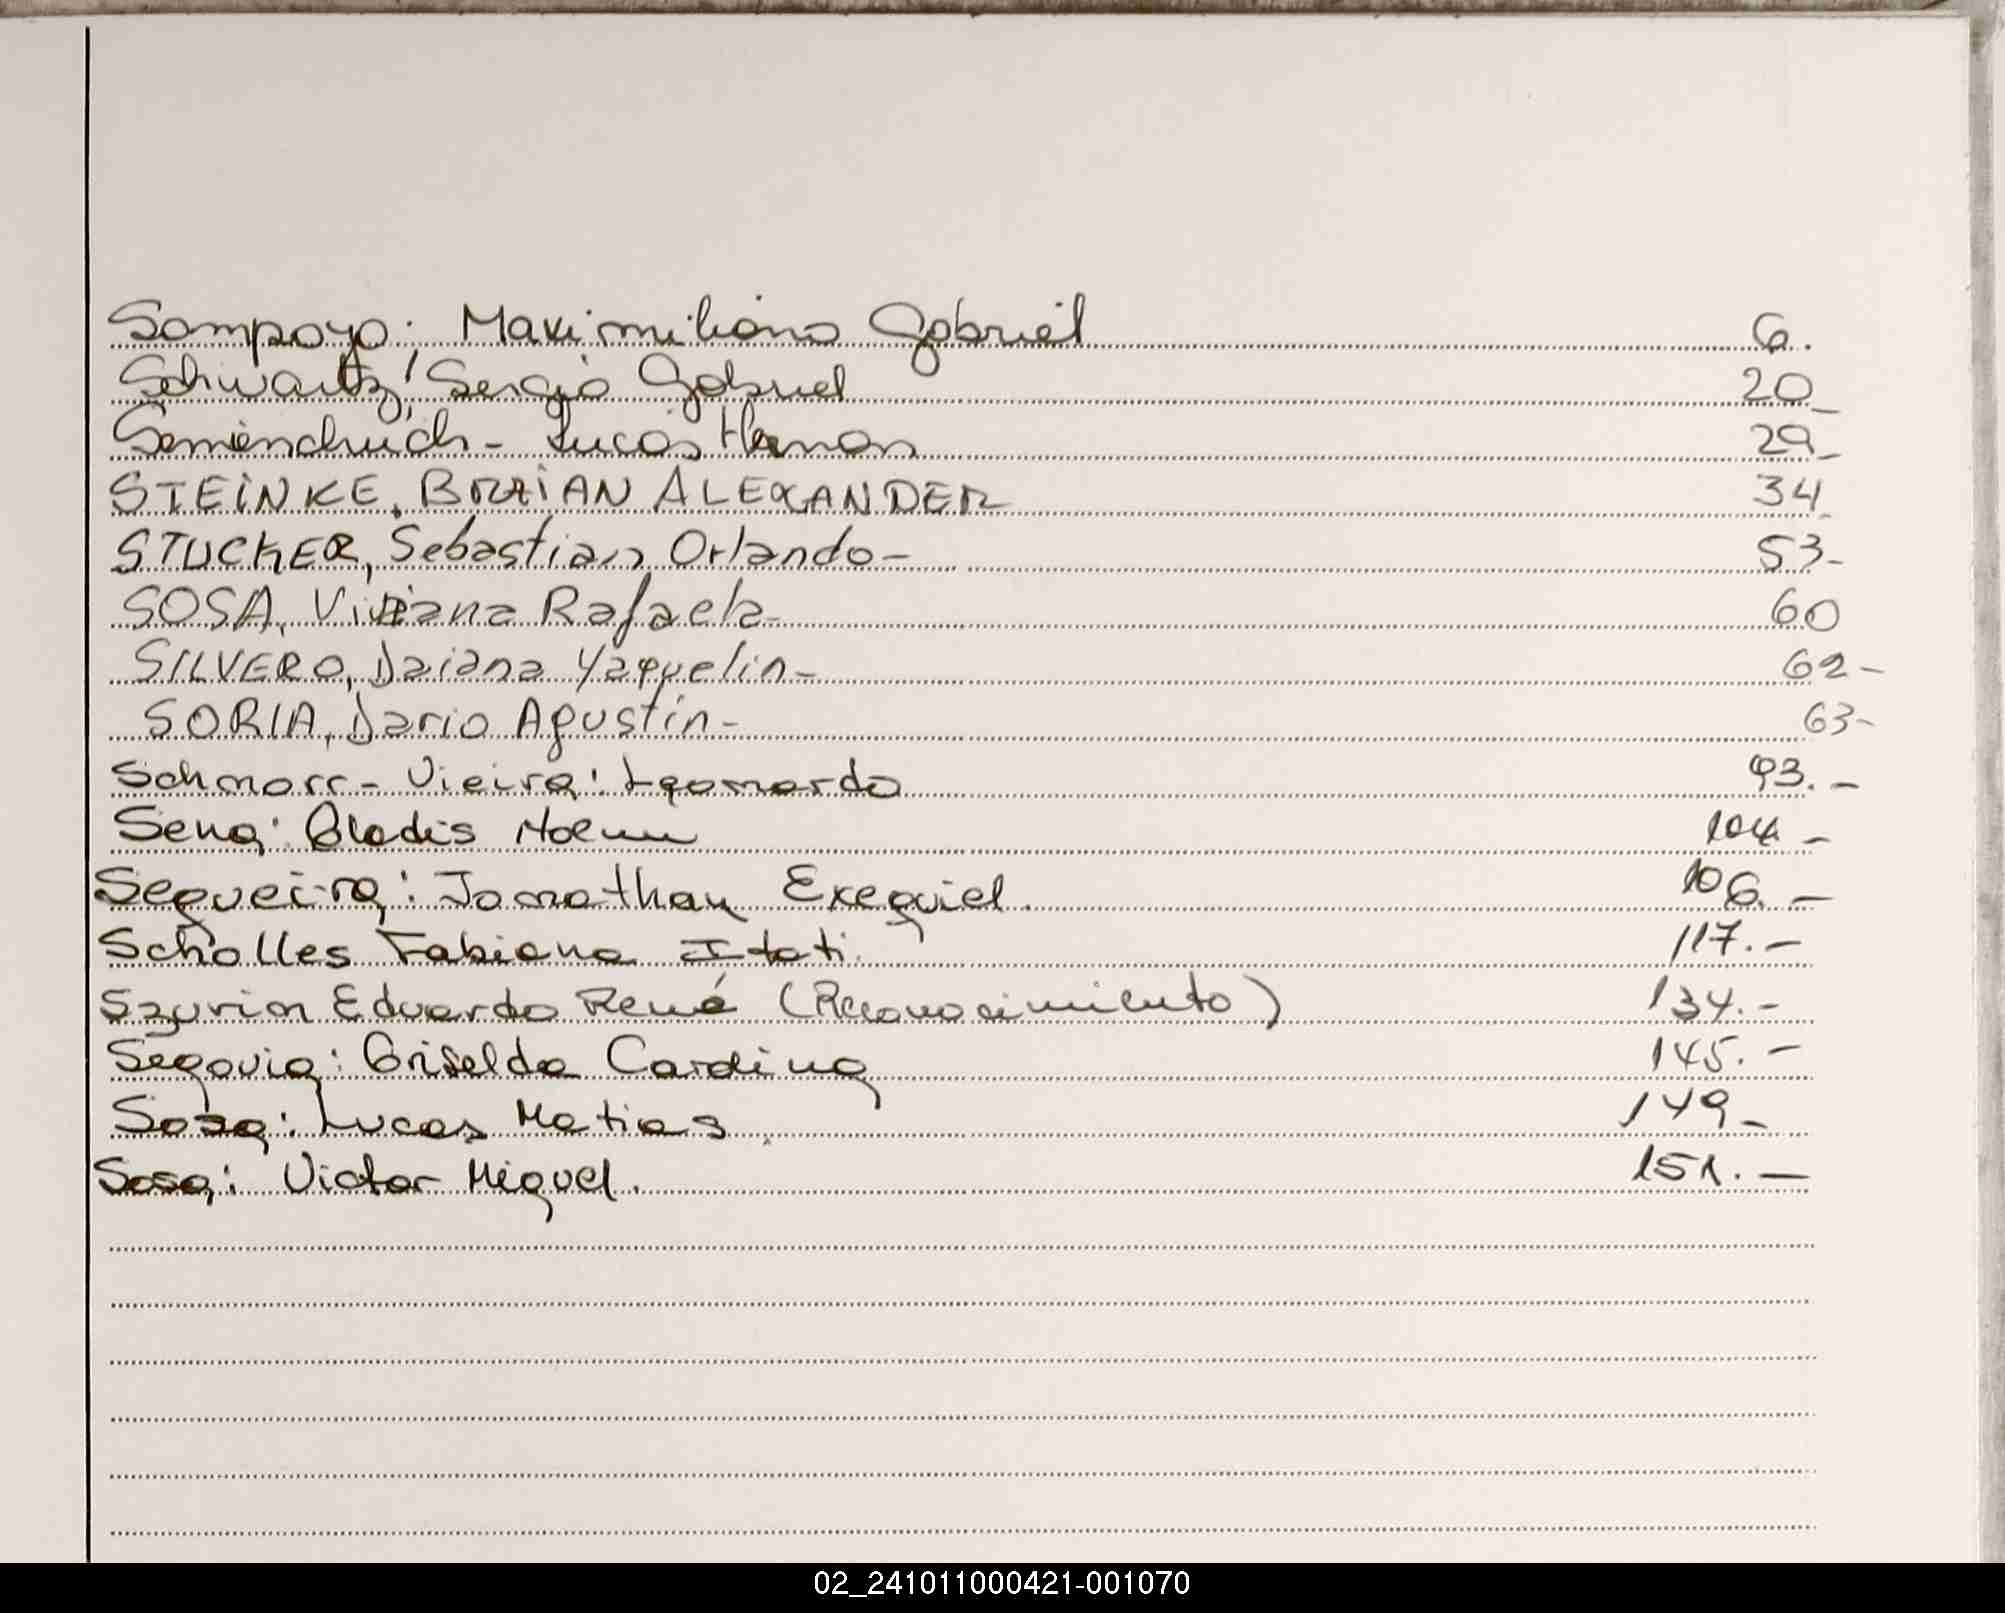 Sampayo: Maximiliano Gabriel 6.
Schwartz: Sergio Gabriel 20_
Semenchuch - Lucas Hernan 29_
STEINKE, BRIAN ALEXANDER 34
STUCKER, Sebastian Orlando - 53-
SOSA, Viviana Rafaela- 60
SILVERO, Daiana Yaquelin- 62-
SORIA, Dario Agustin- 63-
Schnorr - Vieira: Leonardo 93.-
Sena: Gladis Noemi 104-
Sequeira: Jonathan Exequiel. 106.-
Scholles Fabiana Itati. 117.-
Szurin Eduardo René (Reconocimiento) 134.-
Segovia: Griselda Cardina 145.-
Sosa: Lucas Matias 149_
Sosa: Victor Miguel. 151.-
02_241011000421-001070